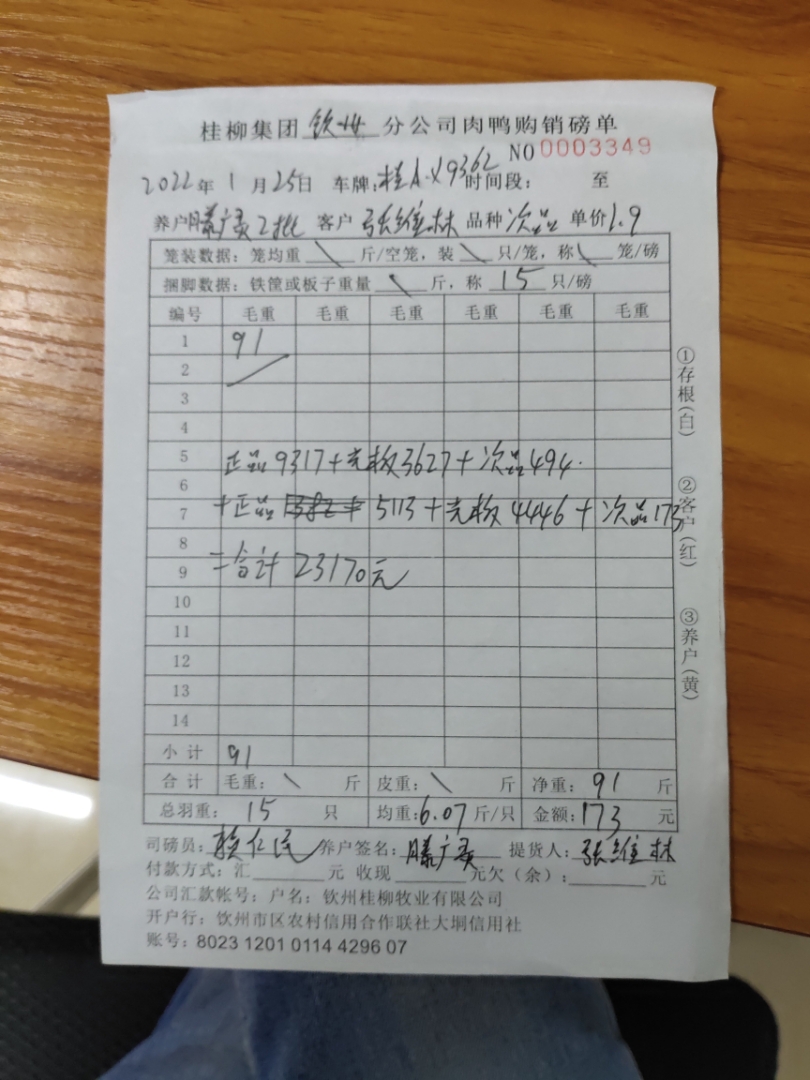 桂柳集团 钦州 分公司肉鸭购销磅单
NO 0003349
2022年 1月 25日 车牌:桂A·X9362 时间段: 至
养户 滕广 2批 客户 张维林 品种 次品 单价 1.9
笼装数据: 笼均重 \ 斤/空笼, 装 \ 只/笼, 称 \ 笼/磅
捆脚数据: 铁筐或板子重量 \ 斤, 称 15 只/磅
编号 毛重 毛重 毛重 毛重 毛重 毛重
1 91
2
3
4
5 正品9317+光板3627+次品494.
6
7 +正品 5113+光板4446+次品173
8
9 =合计 23170元
10
11
12
13
14
小计 91
合计 毛重: \ 斤 皮重: \ 斤 净重: 91 斤
总羽重: 15 只 均重:6.07斤/只 金额:173 元
司磅员: 仁民 养户签名: 滕广 提货人: 张维林
付款方式: 汇 元 收现 元欠(余): 元
公司汇款帐号: 户名: 钦州桂柳牧业有限公司
开户行: 钦州市区农村信用合作联社大垌信用社
账号: 8023 1201 0114 4296 07
①存根(白)
②客户(红)
③养户(黄)